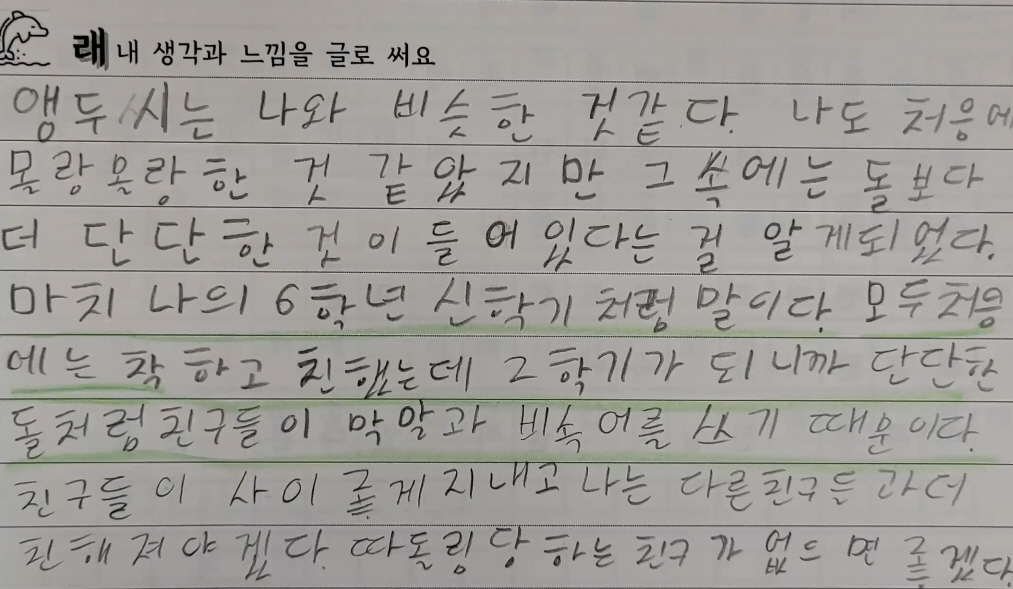 래 내 생각과 느낌을 글로 써요
앵두씨는 나와 비슷한 것같다. 나도 처음에
몰랑몰랑한 것 같았지만 그 속에는 돌보다
더 단단한 것이 들어있다는 걸 알게되었다.
마치 나의 6학년 신학기 처럼 말이다. 모두처음
에는 착하고 친했는데 2학기가 되니까 단단한
돌처럼 친구들이 막말과 비속어를 쓰기 때문이다.
친구들이 사이 좋게 지내고 나는 다른친구들과더
친해져야겠다. 따돌림당하는 친구가 없으면 좋겠다